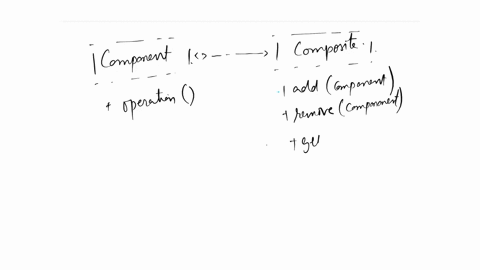 Component <> Composite
+ operation ()
+ add (Component)
+ remove (Component)
+ ge